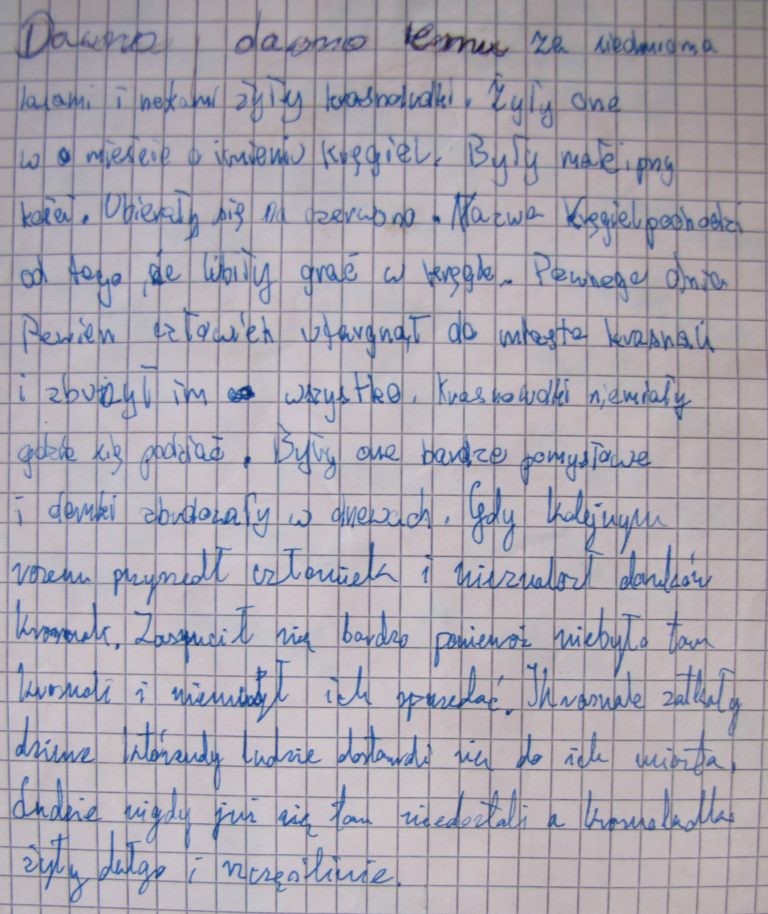 Dawno, dawno temu za siedmioma
lasami i rzekami żyły krasnoludki. Żyły one
w mieście o imieniu Kręgiel. Były małe i przy
kości. Ubierały się na czerwono. Nazwa Kręgiel pochodzi
od tego że lubiły grać w kręgle. Pewnego dnia
Pewien człowiek wtargnął do miasta krasnali
i zbużył im wszystko. Krasnoludki niemiały
gdzie się podziać. Były one bardzo pomysłowe
i domki zbudowały w drzewach. Gdy kolejnym
razem przyszedł człowiek i nieznalozł domków
krasnali. Zasmucił się bardzo ponieważ niebyło tam
krasnali i niemógł ich sprzedać. Krasnale zatkały
dziure którendy ludzie dostawali się do ich miasta.
Ludzie nigdy już się tam niedostali a krasnoludki
żyły długo i szczęśliwie.